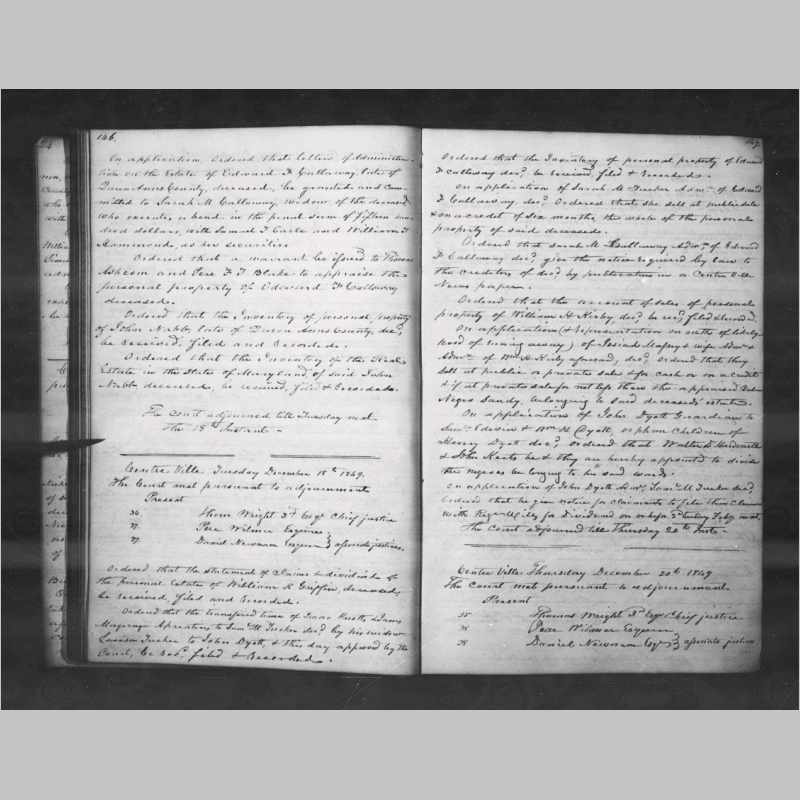 146.
On application, Ordered that letters of Administra-
tion on the Estate of Edward F Calloway late of
Queen Anns County, deceased, be granted and Com-
mitted to Sarah M Calloway, Widow of the deceased
who executes a bond in the penal sum of Fifteen hun-
dred dollars, with Samuel T Earle and William F
as her securities
Ordered that a warrant be issued to Thomas
Askcom and Pere F. T. Blake to appraise the
personal property of Edward F Calloway
deceased.
Ordered that the Inventory of personal property
of John Nabb, late of Queen Anns County, decd,
be received, filed and Recorded.
Ordered that the Inventory of the Real
Estate in the State of Maryland, of said John
Nabb deceased, be received, filed & Recorded.
The Court adjourned till Tuesday next
the 18th Instant -
Centre Ville Tuesday December 18th 1849.
The Court met pursuant to adjournment
Present
36. Thom Wright 3d Esqr Chief justice
37. Pere Wilmer Esquire
27. Daniel Newnam Esquire } associate justices.
Ordered that the Statement of Claims & dividends of
the personal Estate of William R Griffin, deceased,
be received, filed and Recorded.
Ordered that the transferred time of Isaac & James
Apprentices to Saml M Tucker decd by his widow
Tucker to John Dyott, & this day approved by the
Court, be recd filed & Recorded.
147.
Ordered that the Inventory of personal property of Edward
F Calloway decd, be received, filed & Recorded.
On application of Sarah M Tucker Admx of Edward
F Calloway decd Ordered that she sell at public sale
& on a credit of Six months, the whole of the personal
property of said deceased.
Ordered that Sarah M Calloway Admx of Edward
F Calloway decd give the notice required by law to
the Creditors of decd by publication in a Centre Ville
News paper.
Ordered that the account of Sales of personal
property of William H Kirby, decd be recd, filed & Record.
On application (& representation on oath of likely
hood of runing away) of Josiah & wife Admr &
Admx of Wm H Kirby aforesaid, decd, ordered that they
Sell at public or private sale & for cash or on a credit
& if at private sale for not less than the appraised Value
Negro Sandy, belonging to said deceaseds estate.
On application of John Dyott Guardian to
Edwin & Wm H Dyott, orphan children of
Henry Dyott decd Ordered that Walter
& John be & they are hereby appointed to divide
the negroes belonging to his said wards.
On application of John Dyott Admr, Saml M Tucker decd
Ordered that he give notice for claimants to file their Claims
with Regr Wills, for Dividend on or before 3d tuesday Feby next.
The Court adjourned till Thursday 20th Inst -
Centre Ville Thursday December 20th 1849
The Court met pursuant to adjournment
Present
Thomas Wright 3d Esqr Chief justice
Pere Wilmer Esquire
28 Daniel Newnam Esqr } associate justices